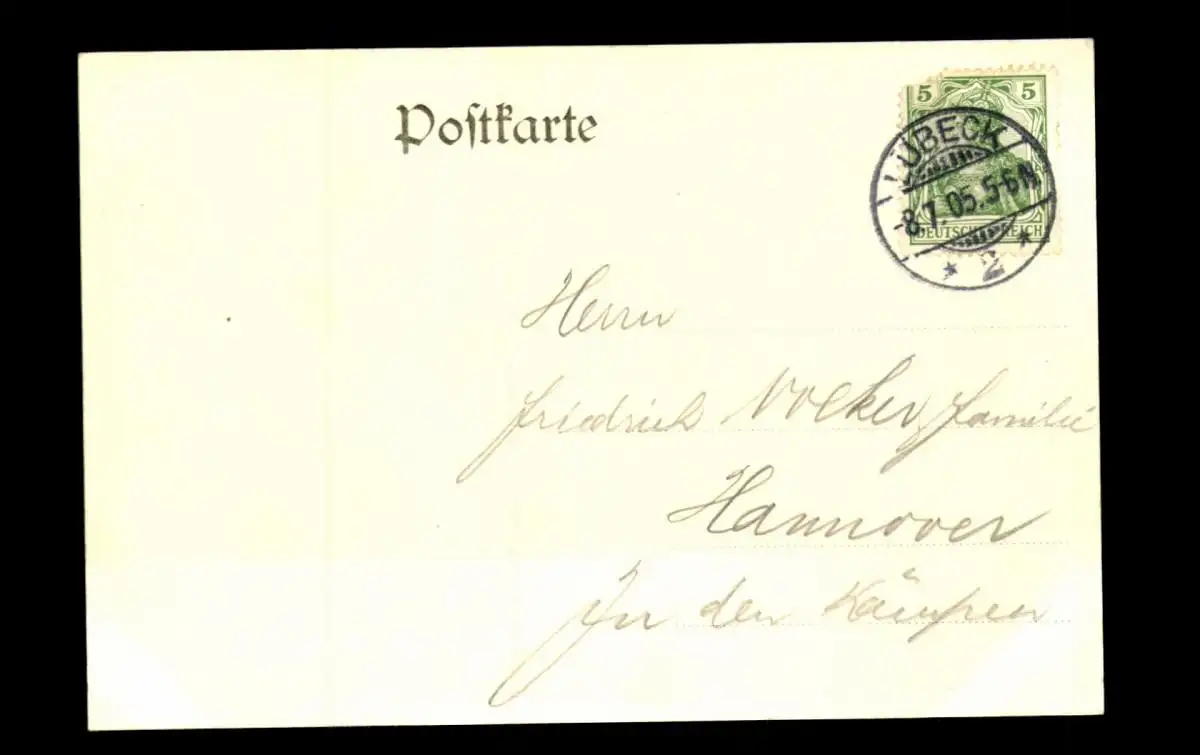 Postkarte
5 5
LÜBECK
-8.7.05.5-6N.
DEUTSCHES REICH
* 2 *
Herrn
Friedrich Volker, Familie
Hannover
In den Kämpen